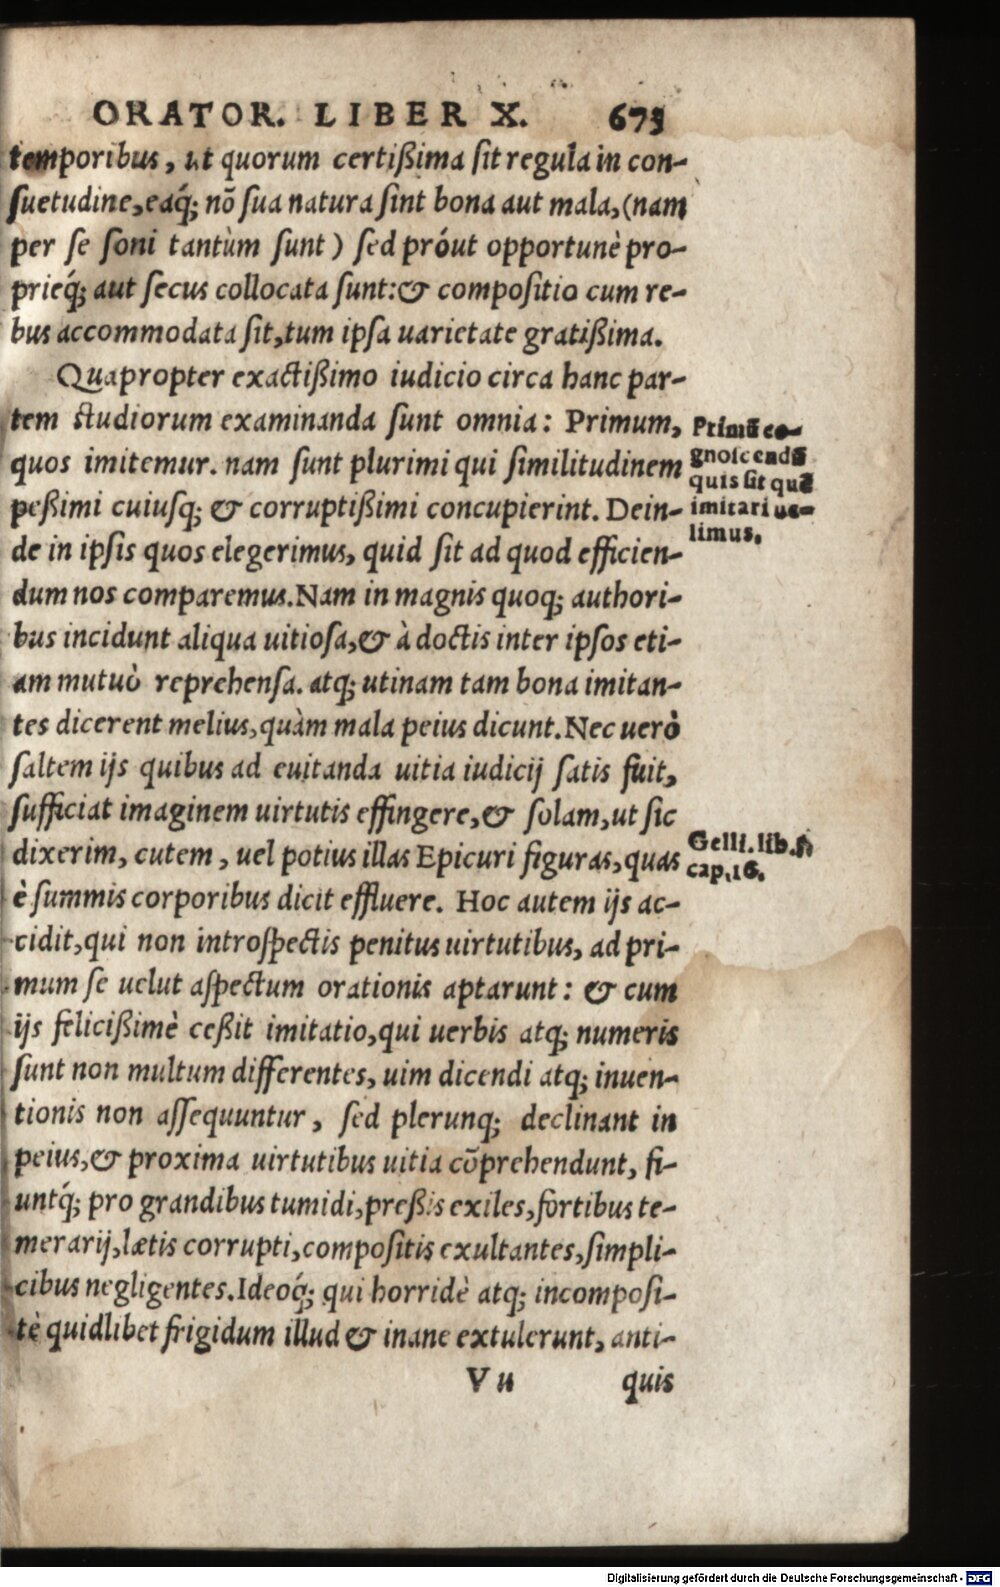 ORATOR. LIBER X. 673
temporibus, ut quorum certißima sit regula in con-
suetudine, eaq́; nõ sua natura sint bona aut mala, (nam
per se soni tantùm sunt) sed próut opportunè pro-
prieq́; aut secus collocata sunt: & compositio cum re-
bus accommodata sit, tum ipsa uarietate gratißima.
Quapropter exactißimo iudicio circa hanc par-
tem studiorum examinanda sunt omnia: Primum,
quos imitemur. nam sunt plurimi qui similitudinem
peßimi cuiusq; & corruptißimi concupierint. Dein-
de in ipsis quos elegerimus, quid sit ad quod efficien-
dum nos comparemus. Nam in magnis quoq; authori-
bus incidunt aliqua uitiosa, & à doctis inter ipsos eti-
am mutuò reprehensa. atq; utinam tam bona imitan-
tes dicerent melius, quàm mala peius dicunt. Nec uerò
saltem ijs quibus ad euitanda uitia iudicij satis fuit,
sufficiat imaginem uirtutis effingere, & solam, ut sic
dixerim, cutem, uel potius illas Epicuri figuras, quas
è summis corporibus dicit effluere. Hoc autem ijs ac-
cidit, qui non introspectis penitus uirtutibus, ad pri-
mum se uelut aspectum orationis aptarunt: & cum
ijs felicißimè ceßit imitatio, qui uerbis atq; numeris
sunt non multum differentes, uim dicendi atq; inuen-
tionis non assequuntur, sed plerunq; declinant in
peius, & proxima uirtutibus uitia cõprehendunt, fi-
untq́; pro grandibus tumidi, preßis exiles, fortibus te-
merarij, lætis corrupti, compositis exultantes, simpli-
cibus negligentes. Ideoq́; qui horridè atq; incomposi-
tè quidlibet frigidum illud & inane extulerunt, anti-
V u quis
Primũ co-
gnoscendũ
quis sit quē
imitari ue-
limus.
Gelli. lib. 5
cap. 16.
Digitalisierung gefördert durch die Deutsche Forschungsgemeinschaft - DFG